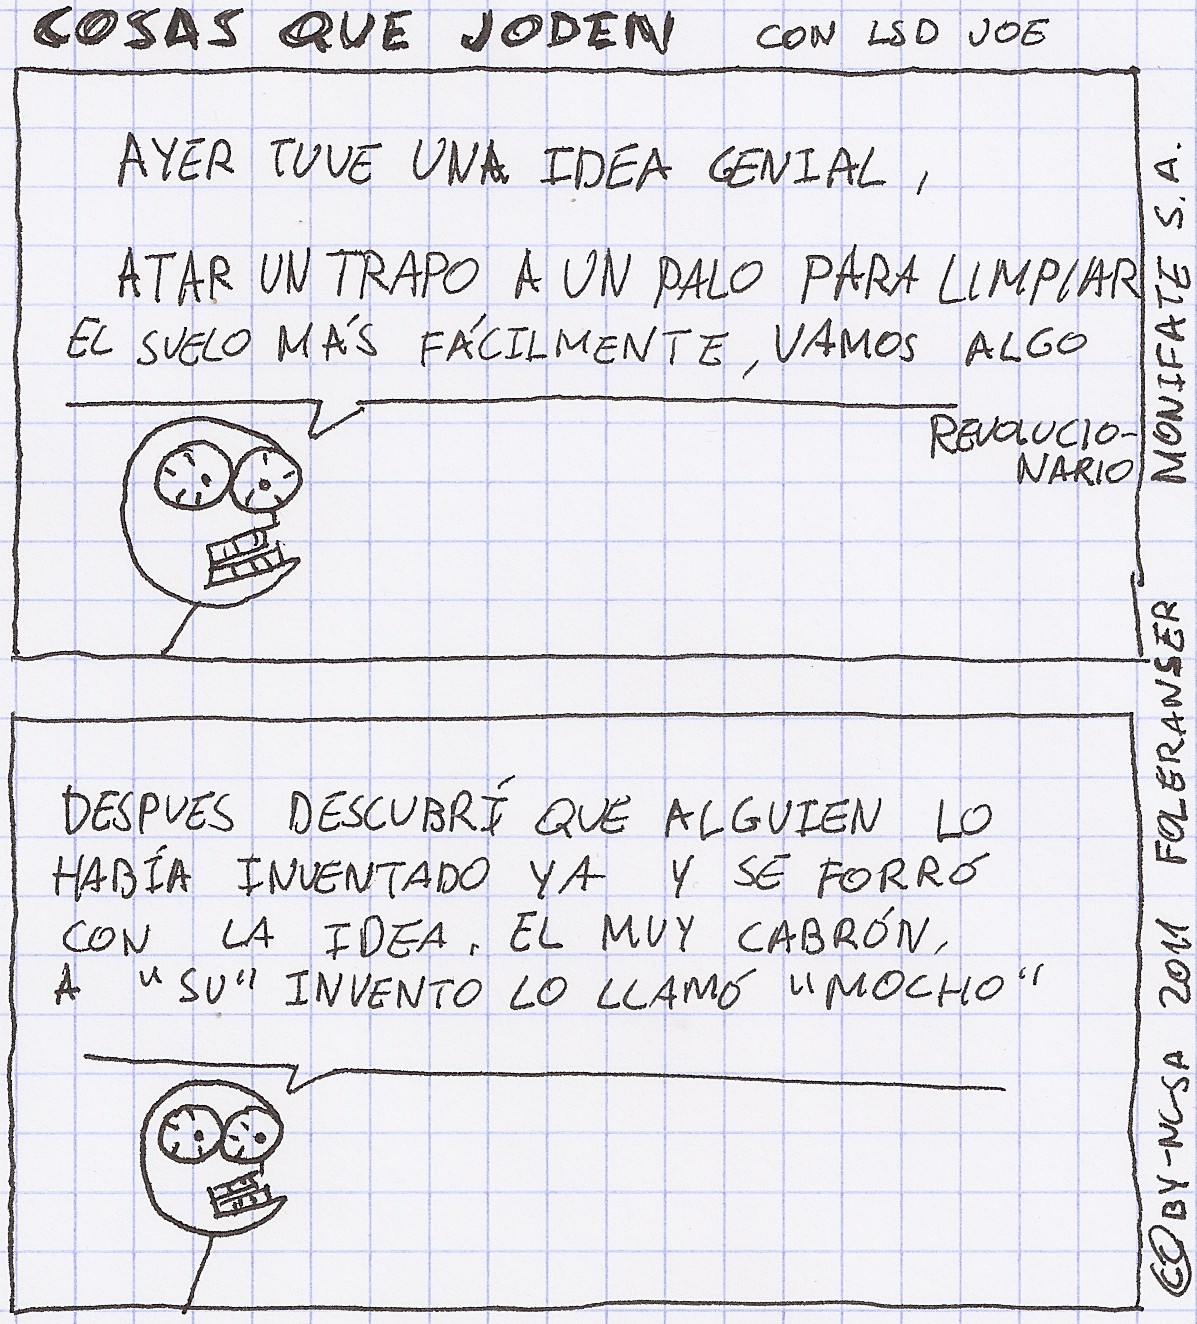 COSAS QUE JODEN CON LSD JOE
AYER TUVE UNA IDEA GENIAL,
ATAR UN TRAPO A UN PALO PARA LIMPIAR
EL SUELO MÁS FÁCILMENTE, VAMOS ALGO
REVOLUCIO-
NARIO
DESPUES DESCUBRÍ QUE ALGUIEN LO
HABÍA INVENTADO YA Y SE FORRÓ
CON LA IDEA. EL MUY CABRÓN,
A "SU" INVENTO LO LLAMÓ "MOCHO"
CC BY-NC-SA 2011 FOLERANSER MONIFATE S.A.